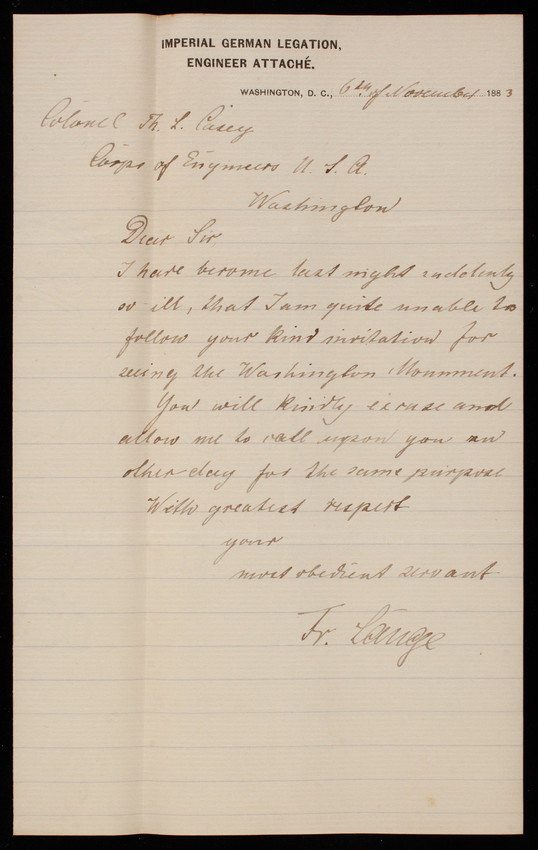 IMPERIAL GERMAN LEGATION,
ENGINEER ATTACHÉ.
WASHINGTON, D. C., 6th of November 1883
Colonel Th. L. Casey
Corps of Engineers U. S. A.
Washington
Dear Sir,
I have become last night suddenly
so ill, that I am quite unable to
follow your kind invitation for
seeing the Washington Monument.
You will kindly excuse and
allow me to call upon you an
other day for the same purpose
With greatest respect
your
most obedient servant
Fr. Lange